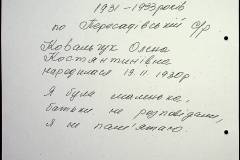 1931-1933 років
по Пересадівській с/р
Ковальчук Олена
Костянтинівна
народилася 19.11.1930р.
Я була маленька,
батьки не розповідали,
я не пам'ятаю.